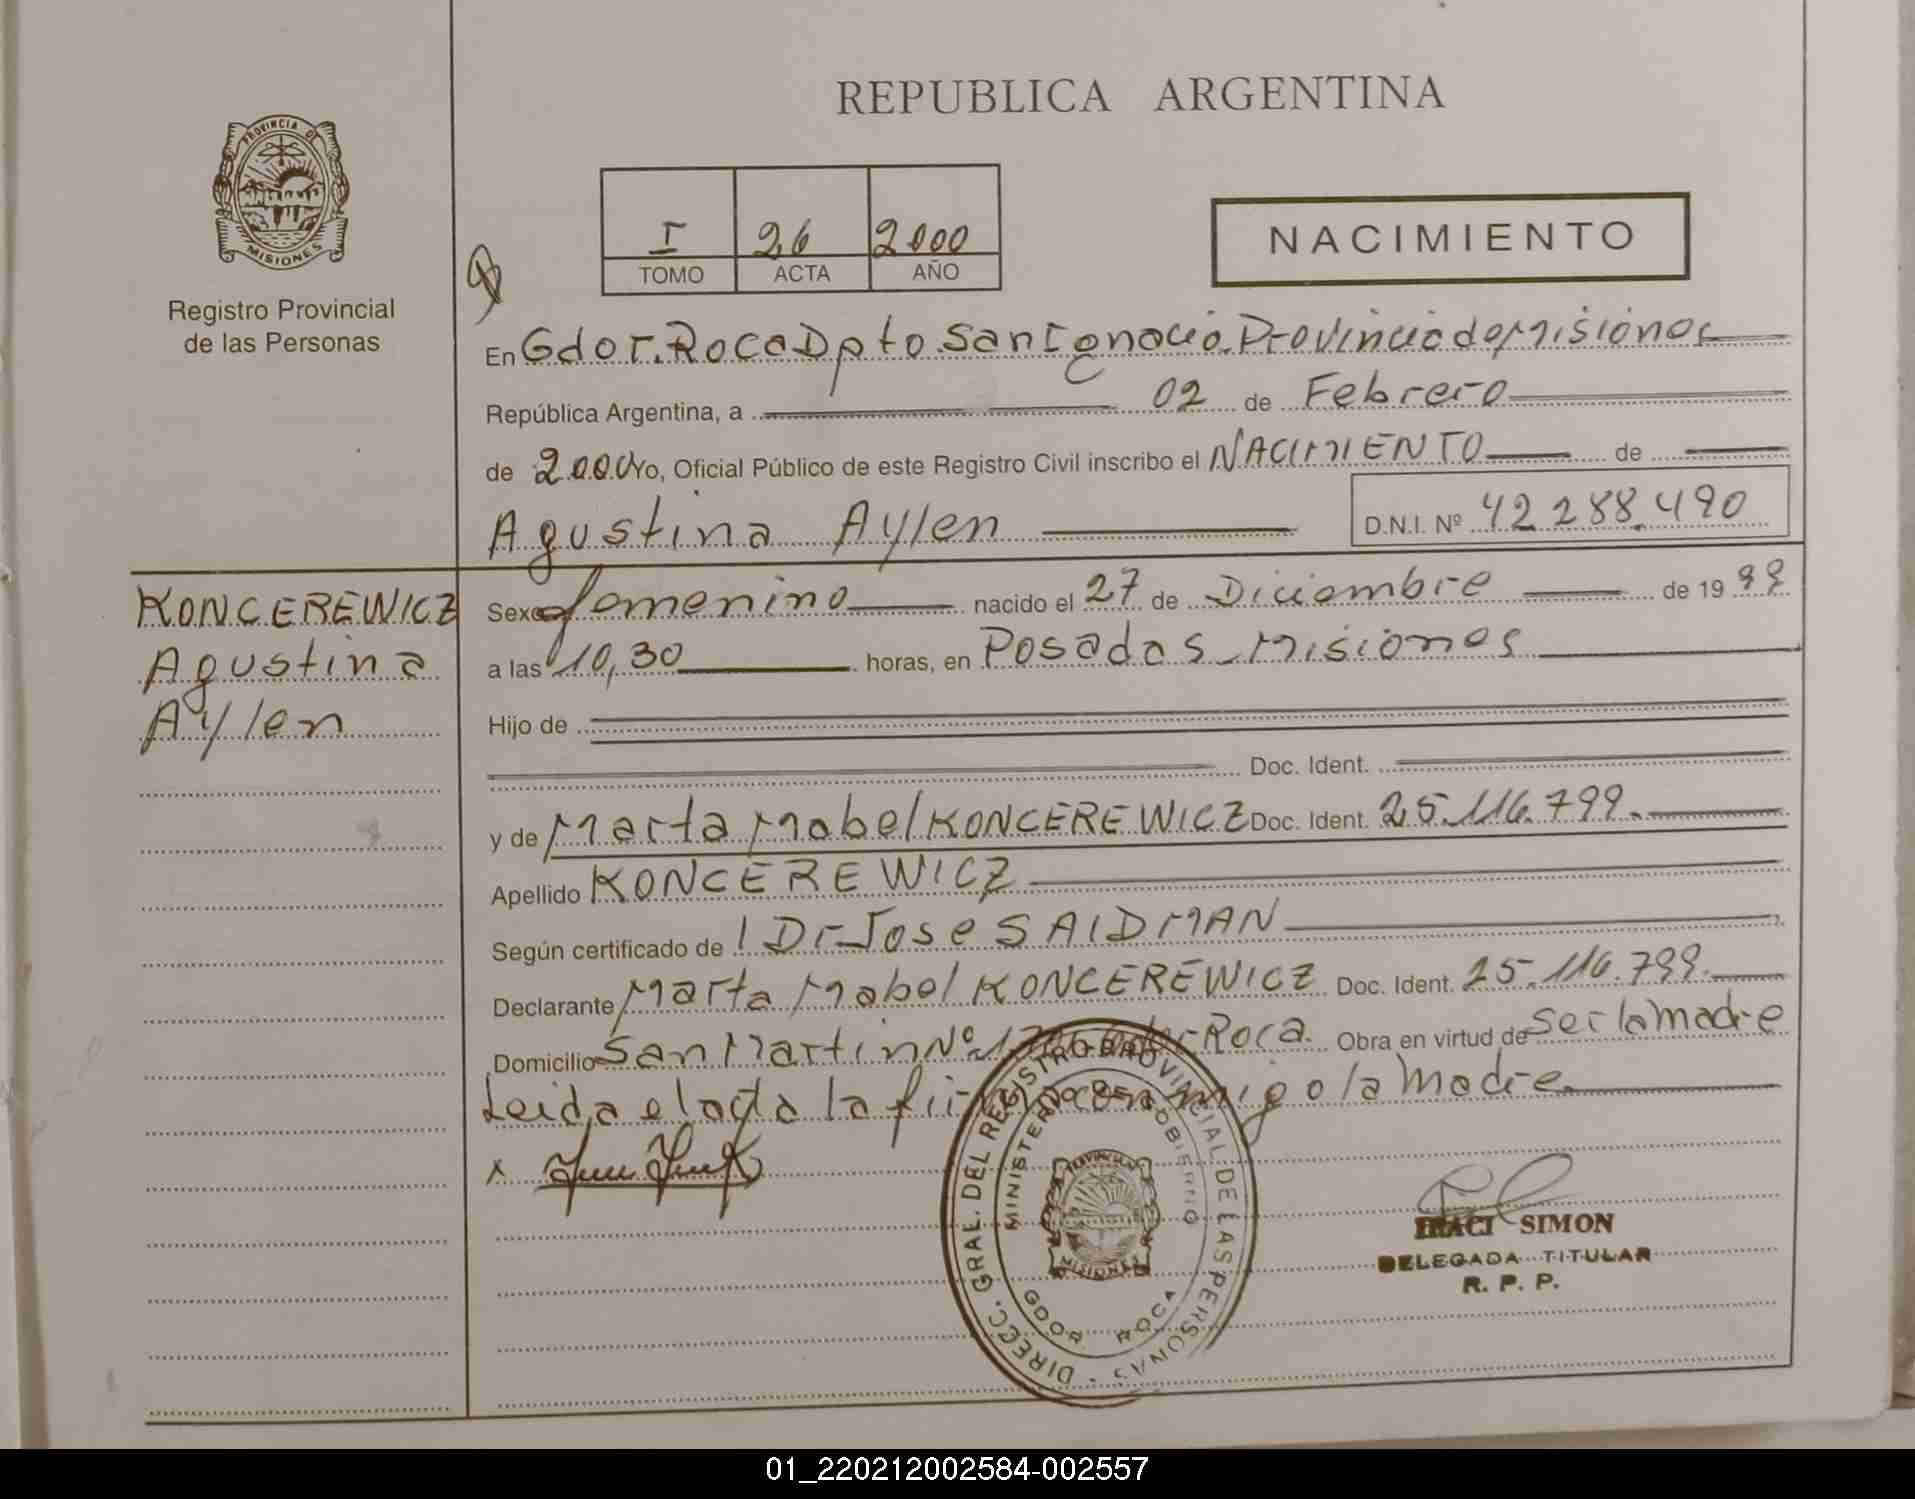 REPUBLICA ARGENTINA
PROVINCIA DE
MISIONES
Registro Provincial
de las Personas
I 26 2000
TOMO ACTA AÑO
NACIMIENTO
En Gdor. Roca Dpto. San Ignacio. Provincia de Misiones
República Argentina, a 02 de Febrero
de 2000 Yo, Oficial Público de este Registro Civil inscribo el NACIMIENTO de
Agustina Aylen D.N.I. Nº 42.288.490
KONCEREWICZ
Agustina
Aylen
Sexo femenino nacido el 27 de Diciembre de 1999
a las 10,30 horas, en Posadas Misiones
Hijo de
Doc. Ident.
y de Marta Mabel KONCEREWICZ Doc. Ident. 25.116.799.
Apellido KONCEREWICZ
Según certificado de Dr Jose SAIDMAN
Declarante Marta Mabel KONCEREWICZ Doc. Ident. 25.116.799.
Domicilio San Martin Nº Gdor Roca. Obra en virtud de ser la madre
Leida el acta la firma conmigo la Madre
x
DIRECC. GRAL. DEL REGISTRO PROVINCIAL DE LAS PERSONAS
MINISTERIO DE GOBIERNO
MISIONES
GDOR ROCA
IRACI SIMON
DELEGADA TITULAR
R. P. P.
01_220212002584-002557